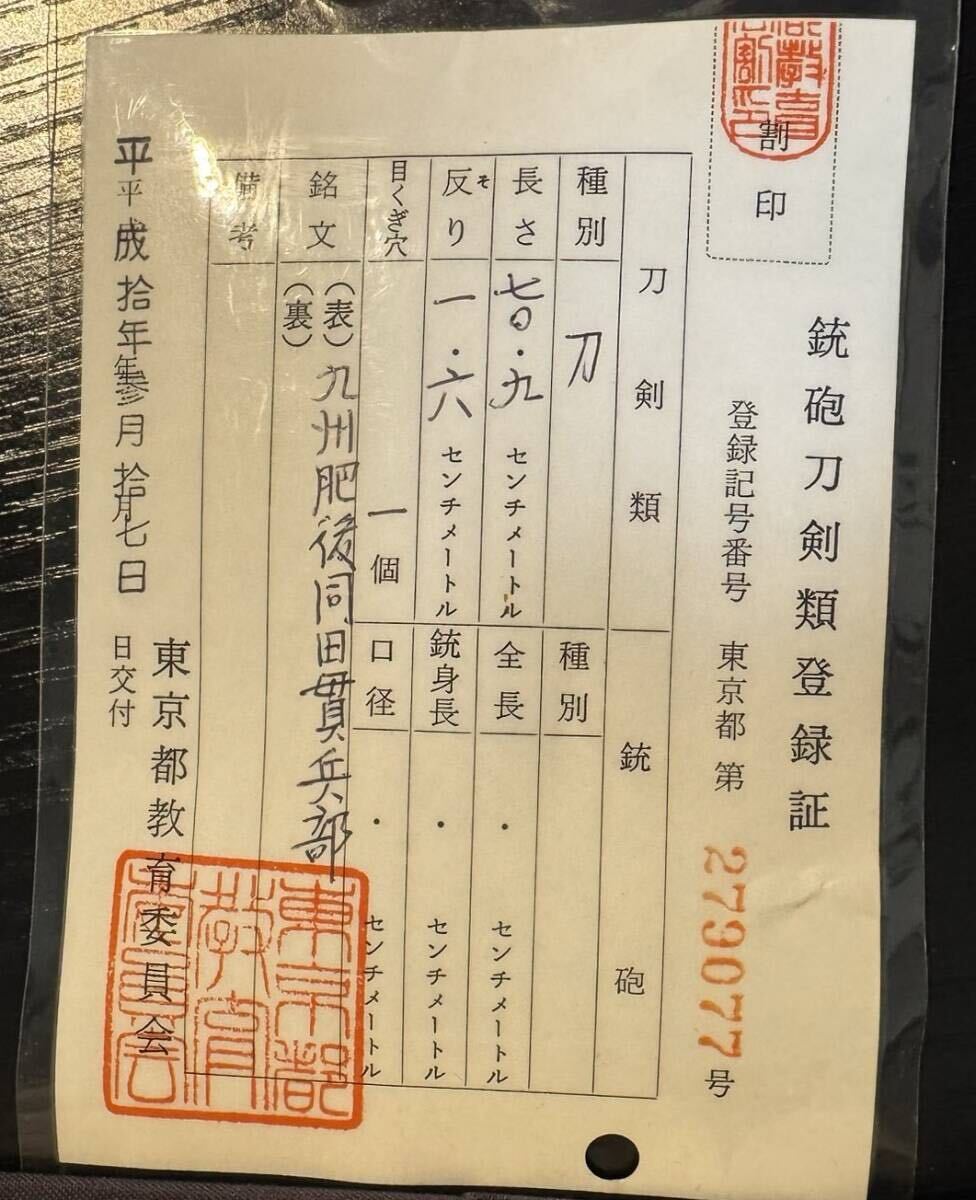 銃砲刀剣類登録証
割印
登録記号番号 東京都 第 279077 号
刀剣類
種別 刀
長さ 七〇・九 センチメートル
反り そ 一・六 センチメートル
目くぎ穴 一個
銘文 (表)九州肥後同田貫兵部
(裏)
備考
銃砲
種別
全長 ・ センチメートル
銃身長 ・ センチメートル
口径 ・ センチメートル
平成拾年参月拾七日
平 年 月 日交付
東京都教育委員会
東京都教育委員会